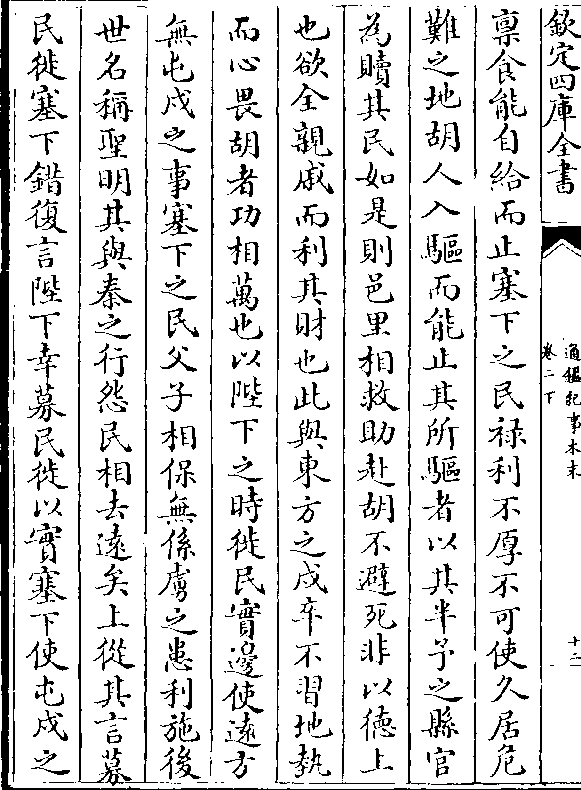 欽定四庫全書
通鑑紀事本末
卷二下
十二
禀食能自給而止塞下之民禄利不厚不可使久居危
難之地胡人入驅而能止其所驅者以其半予之縣官
為贖其民如是則邑里相救助赴胡不避死非以徳上
也欲全親戚而利其財也此與東方之戍卒不習地埶
而心畏胡者功相萬也以陛下之時徙民實邊使遠方
無屯戍之事塞下之民父子相保無係虜之患利施後
世名稱聖明其與秦之行怨民相去遠矣上從其言募
民徙塞下錯復言陛下幸募民徙以實塞下使屯戍之